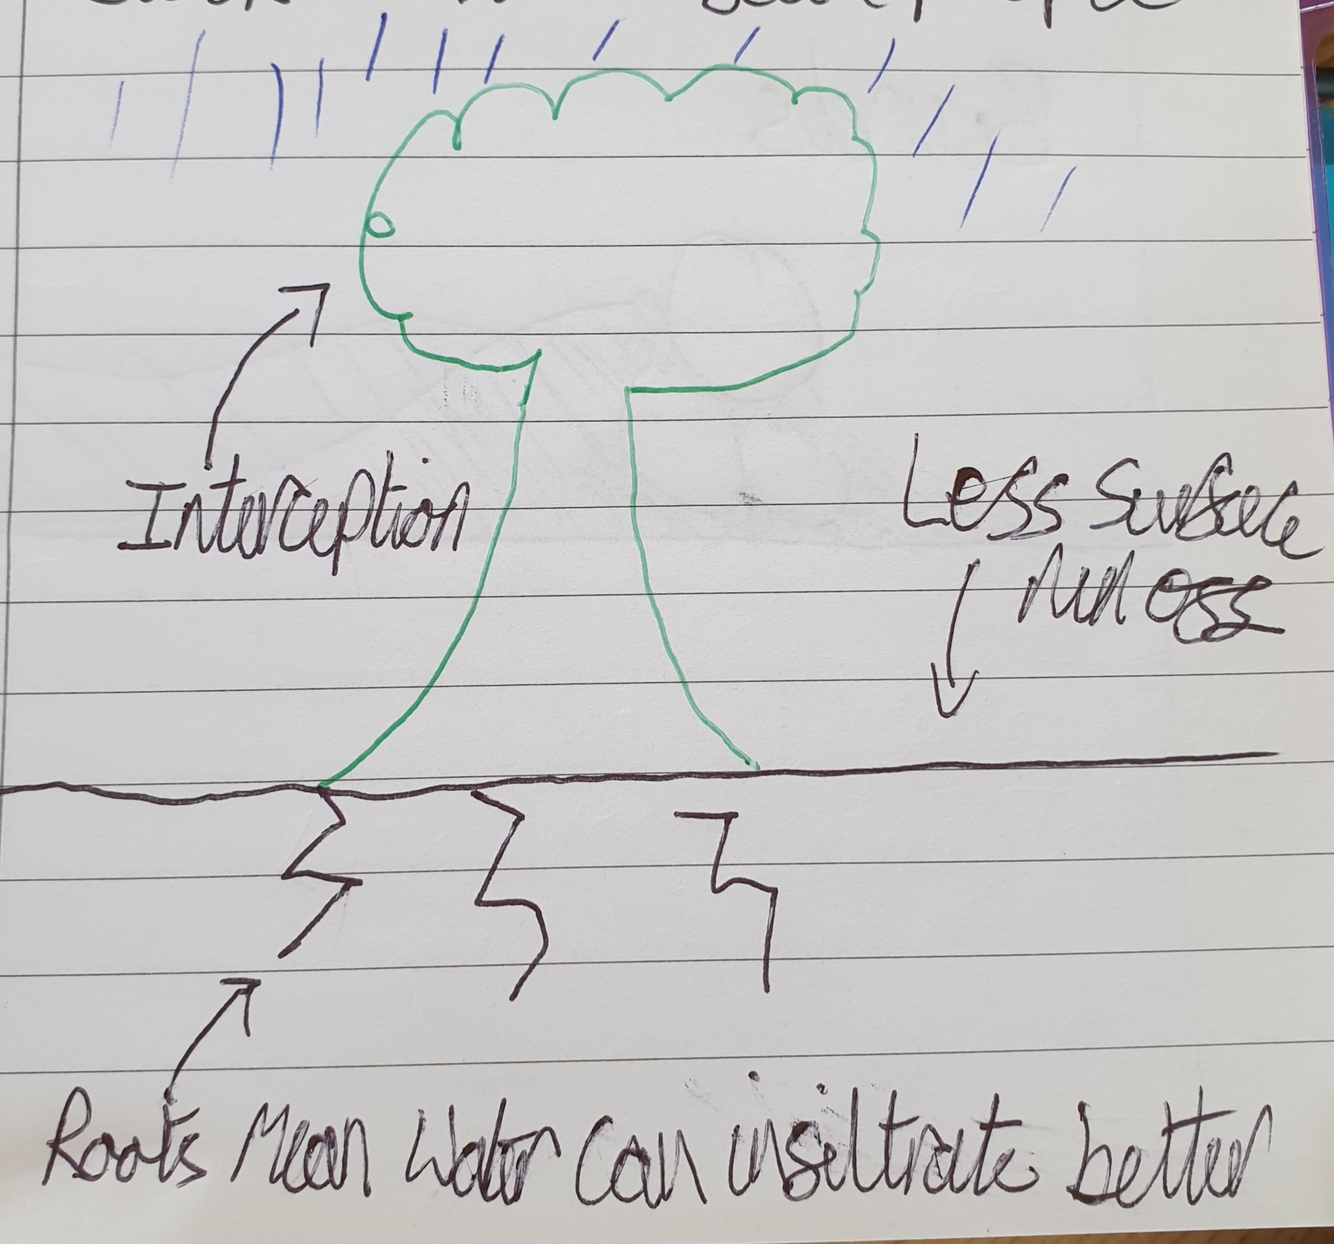 Interception
Less Surface
run off
Roots Mean Water Can infiltrate better